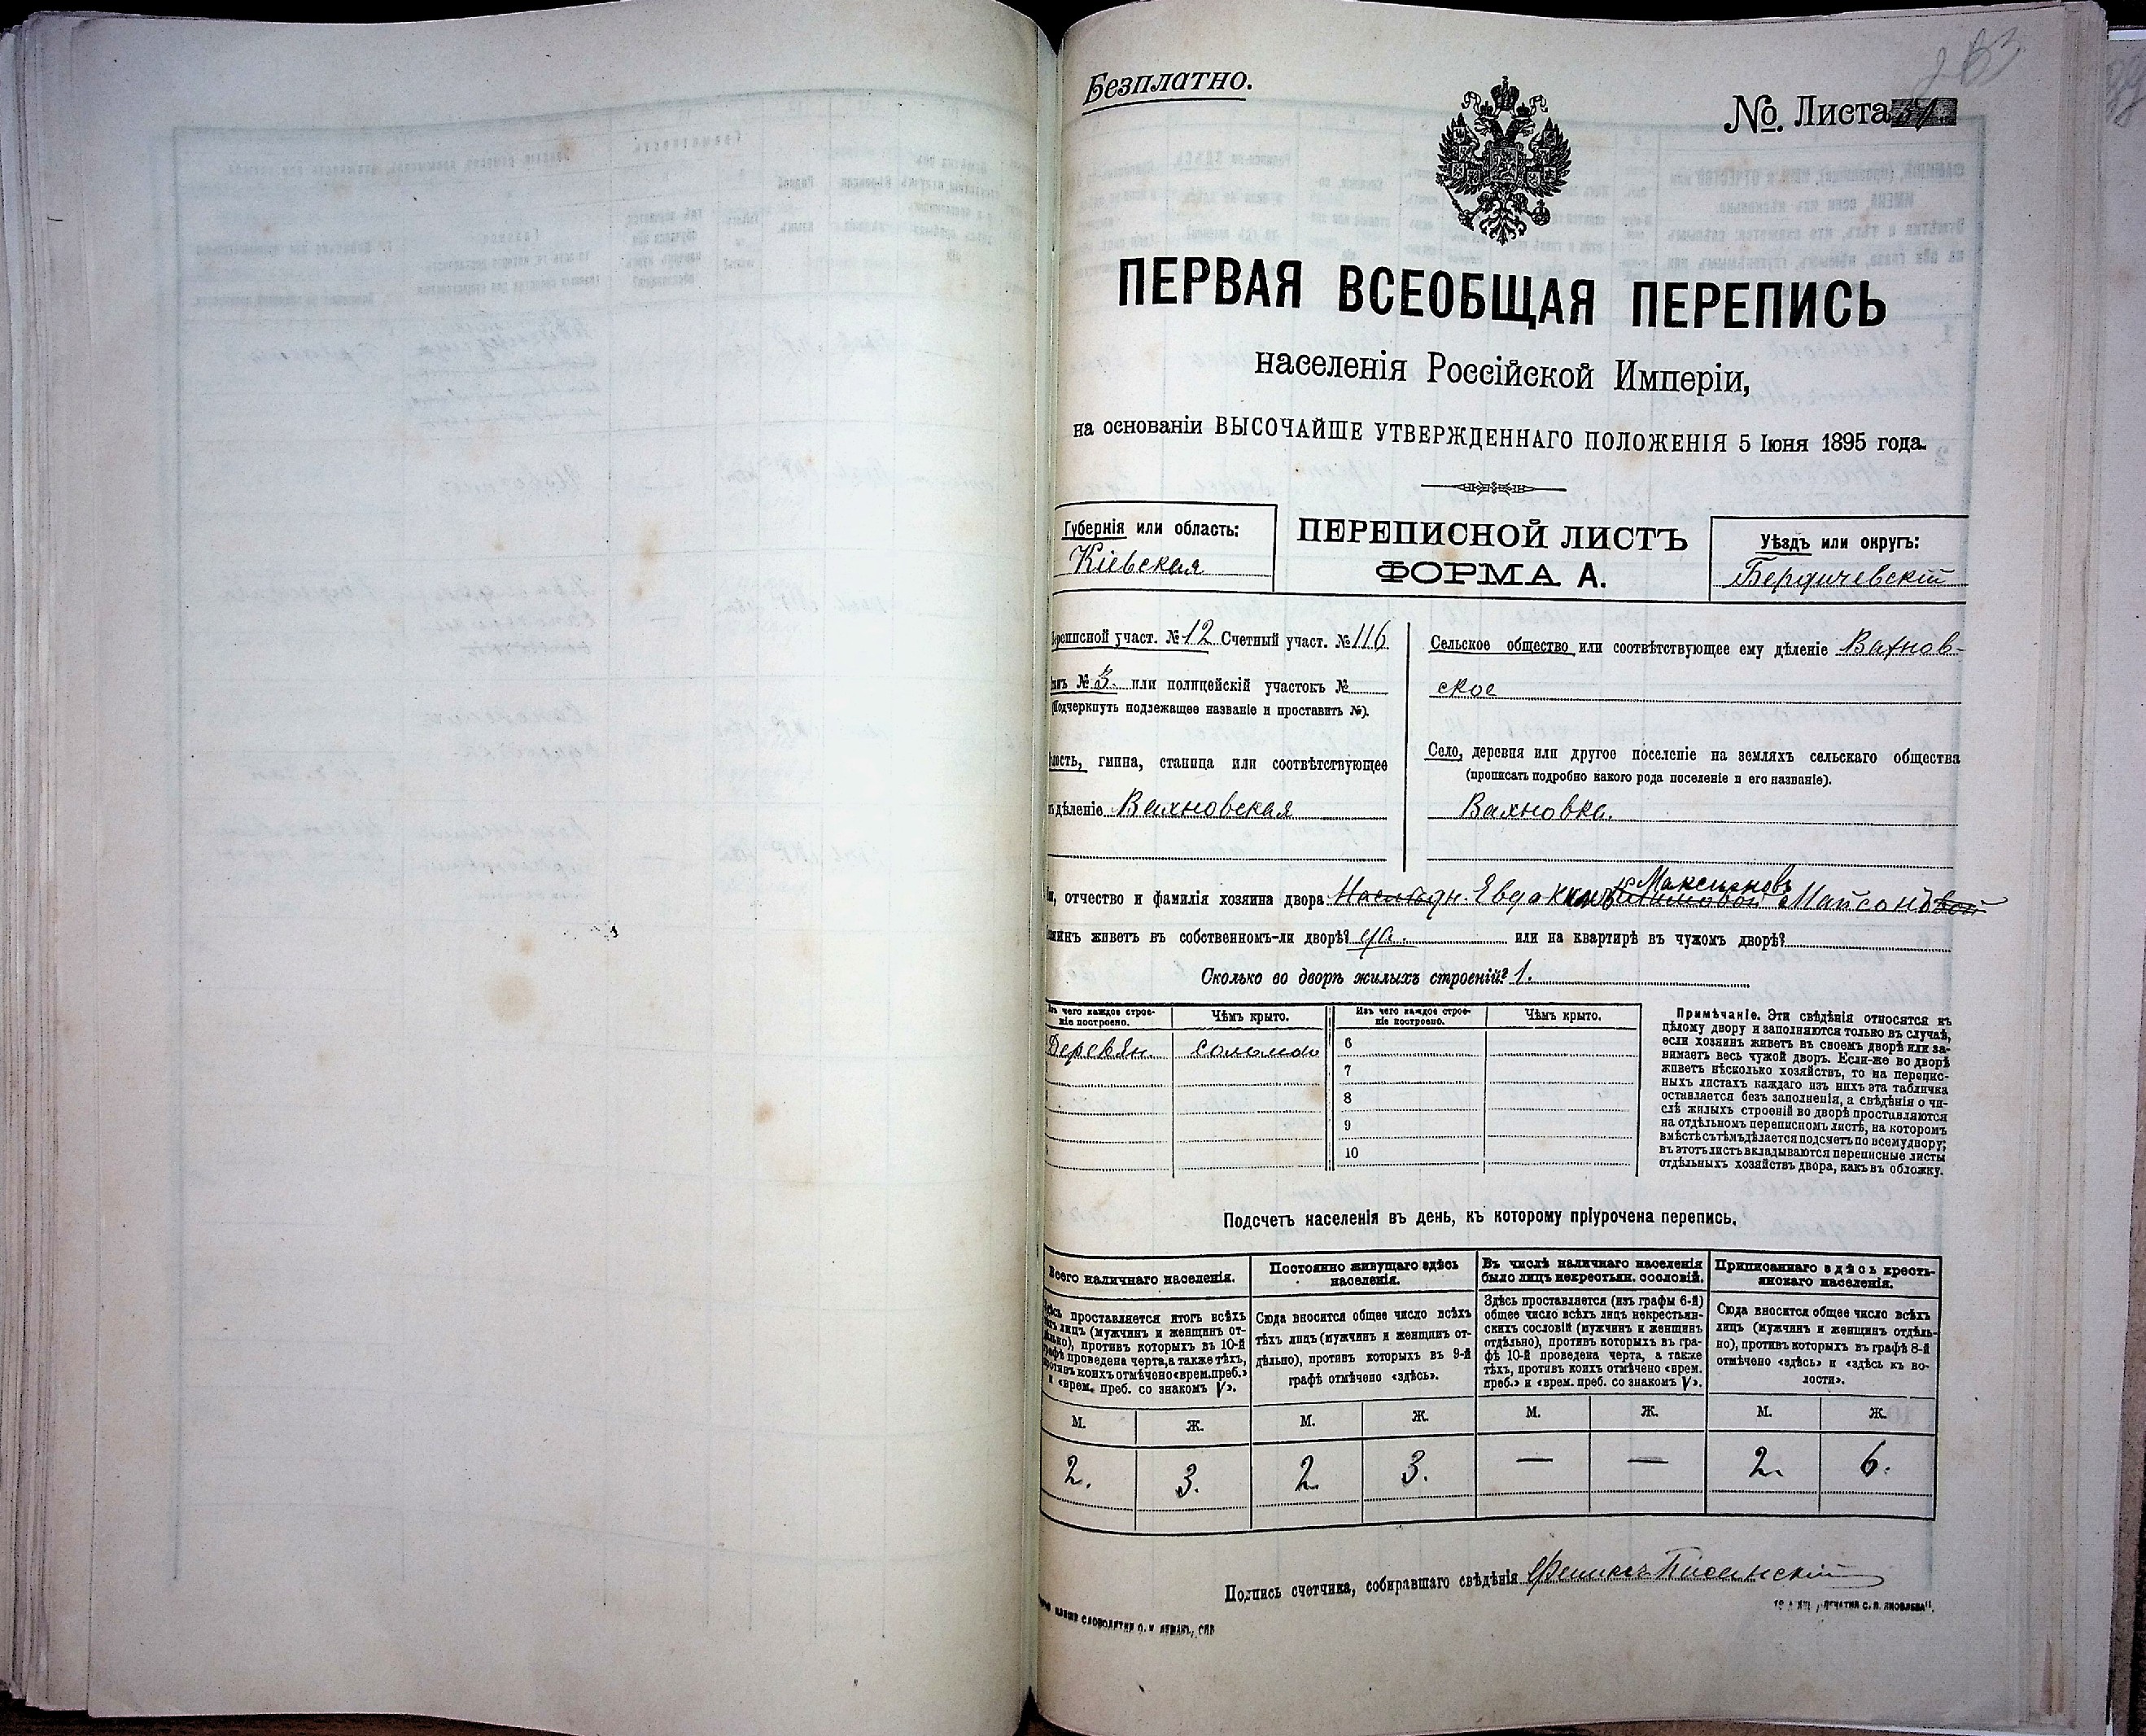 Безплатно.
№ Листа 37
ПЕРВАЯ ВСЕОБЩАЯ ПЕРЕПИСЬ
населенія Россійской Имперіи,
на основаніи ВЫСОЧАЙШЕ УТВЕРЖДЕННАГО ПОЛОЖЕНІЯ 5 Іюня 1895 года.
Губернія или область:
Кіевская
ПЕРЕПИСНОЙ ЛИСТЪ
ФОРМА А.
Уѣздъ или округъ:
Бердичевскій
реписной участ. № 12 Счетный участ. № 116
анъ № 3. или полицейскій участокъ №
(Подчеркнуть подлежащее названіе и проставить №).
лость, гмина, станица или соотвѣтствующее
дѣленіе Вахновская
Сельское общество или соотвѣтствующее ему дѣленіе Вахнов-
ское
Село, деревня или другое поселеніе на земляхъ сельскаго общества
(прописать подробно какого рода поселеніе и его названіе).
Вахновка.
отчество и фамилія хозяина двора Максимовъ
живетъ въ собственномъ-ли дворѣ? да. или на квартирѣ въ чужомъ дворѣ?
Сколько во дворѣ жилыхъ строеній? 1.
чего каждое строе-
ніе построено.
Чѣмъ крыто.
Изъ чего каждое строе-
ніе построено.
Чѣмъ крыто.
Деревян. соломою
6
7
8
9
10
Примѣчаніе. Эти свѣдѣнія относятся къ
цѣлому двору и заполняются только въ случаѣ,
если хозяинъ живетъ въ своемъ дворѣ или за-
нимаетъ весь чужой дворъ. Если-же во дворѣ
живетъ нѣсколько хозяйствъ, то на перепис-
ныхъ листахъ каждаго изъ нихъ эта табличка
оставляется безъ заполненія, а свѣдѣнія о чи-
слѣ жилыхъ строеній во дворѣ проставляются
на отдѣльномъ переписномъ листѣ, на которомъ
вмѣстѣ съ тѣмъ дѣлается подсчетъ по всему двору;
въ этотъ листъ вкладываются переписные листы
отдѣльныхъ хозяйствъ двора, какъ въ обложку.
Подсчетъ населенія въ день, къ которому пріурочена перепись.
Всего наличнаго населенія.
проставляется итогъ всѣхъ
лицъ (мужчинъ и женщинъ от-
дѣльно), противъ которыхъ въ 10-й
графѣ проведена черта, а также тѣхъ,
противъ коихъ отмѣчено «врем. преб.»
и «врем. преб. со знакомъ V».
Постоянно живущаго здѣсь
населенія.
Сюда вносится общее число всѣхъ
тѣхъ лицъ (мужчинъ и женщинъ от-
дѣльно), противъ которыхъ въ 9-й
графѣ отмѣчено «здѣсь».
Въ числѣ наличнаго населенія
было лицъ некрестьян. сословій.
Здѣсь проставляется (изъ графы 6-й)
общее число всѣхъ лицъ некрестьян-
скихъ сословій (мужчинъ и женщинъ
отдѣльно), противъ которыхъ въ гра-
фѣ 10-й проведена черта, а также
тѣхъ, противъ коихъ отмѣчено «врем.
преб.» и «врем. преб. со знакомъ V».
Приписаннаго здѣсь кресть-
янскаго населенія.
Сюда вносится общее число всѣхъ
лицъ (мужчинъ и женщинъ отдѣль-
но), противъ которыхъ въ графѣ 8-й
отмѣчено «здѣсь» и «здѣсь къ во-
лости».
М. Ж. М. Ж. М. Ж. М. Ж.
2. 3. 2 3. — — 2. 6.
Подпись счетчика, собиравшаго свѣдѣнія